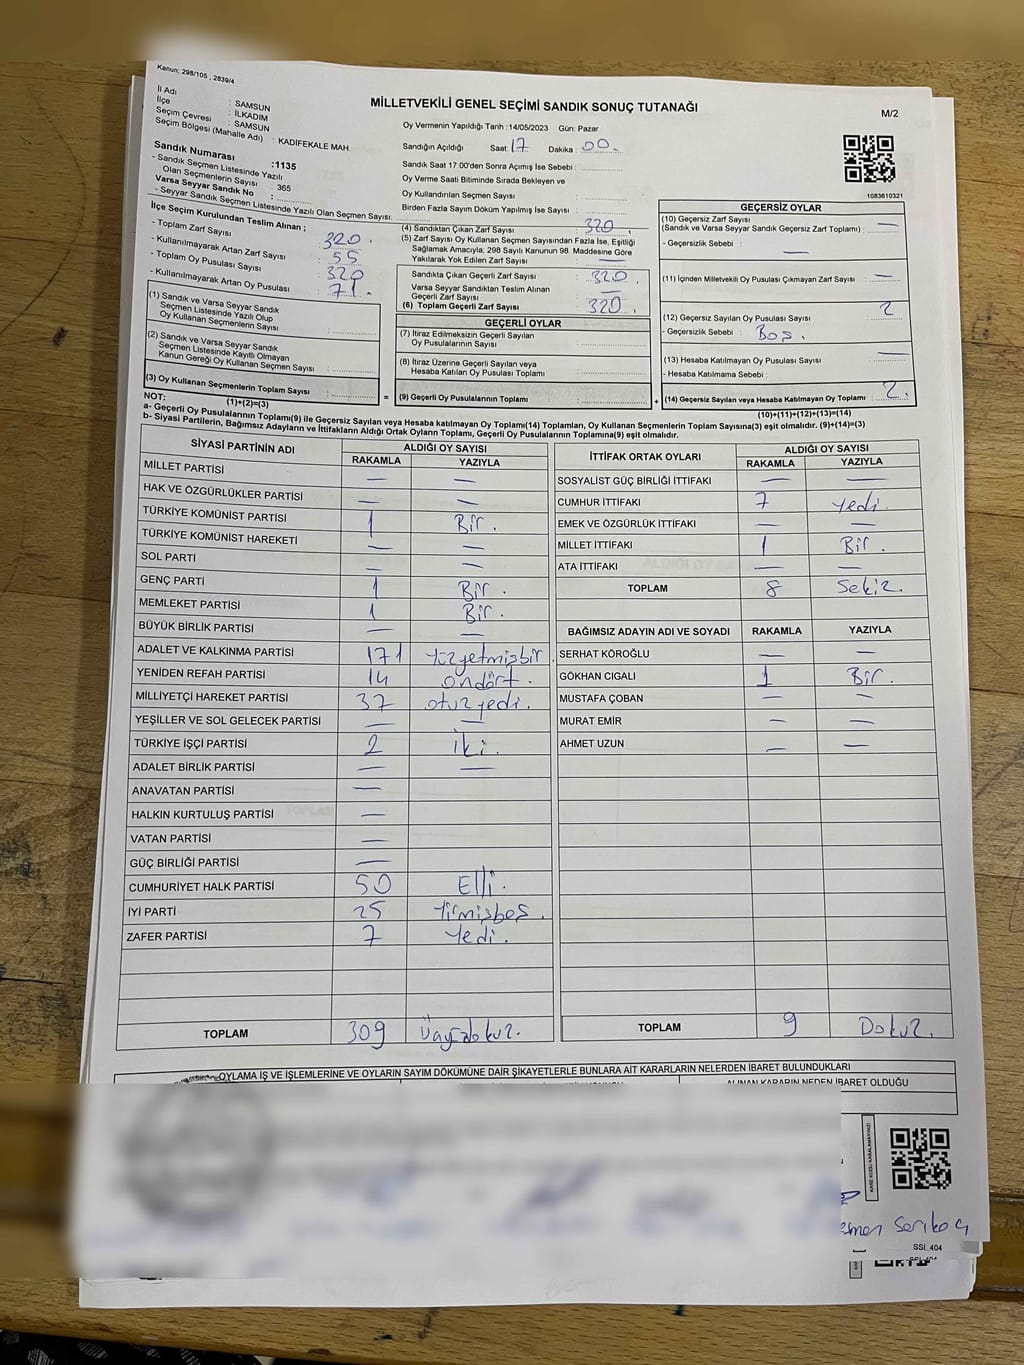 Kanun: 298/105 , 2839/4
MİLLETVEKİLİ GENEL SEÇİMİ SANDIK SONUÇ TUTANAĞI
M/2
İl Adı : SAMSUN
İlçe : İLKADIM
Seçim Çevresi : SAMSUN
Seçim Bölgesi (Mahalle Adı) : KADİFEKALE MAH.
Sandık Numarası :1135
- Sandık Seçmen Listesinde Yazılı
Olan Seçmenlerin Sayısı : 365
Varsa Seyyar Sandık No :
- Seyyar Sandık Seçmen Listesinde Yazılı Olan Seçmen Sayısı:
Oy Vermenin Yapıldığı Tarih :14/05/2023 Gün: Pazar
Sandığın Açıldığı Saat: 17 Dakika : 00.
Sandık Saat 17:00'den Sonra Açımış İse Sebebi :
Oy Verme Saati Bitiminde Sırada Bekleyen ve
Oy Kullandırılan Seçmen Sayısı :
Birden Fazla Sayım Döküm Yapılmış İse Sayısı :
1083610321
İlçe Seçim Kurulundan Teslim Alınan ;
- Toplam Zarf Sayısı : 320.
- Kullanılmayarak Artan Zarf Sayısı : 55
- Toplam Oy Pusulası Sayısı : 320
- Kullanılmayarak Artan Oy Pusulası : 71.
(1) Sandık ve Varsa Seyyar Sandık
Seçmen Listesinde Yazılı Olup
Oy Kullanan Seçmenlerin Sayısı :
(2) Sandık ve Varsa Seyyar Sandık
Seçmen Listesinde Kayıtlı Olmayan
Kanun Gereği Oy Kullanan Seçmen Sayısı :
(3) Oy Kullanan Seçmenlerin Toplam Sayısı :
(1)+(2)=(3)
(4) Sandıktan Çıkan Zarf Sayısı : 320
(5) Zarf Sayısı Oy Kullanan Seçmen Sayısından Fazla İse, Eşitliği
Sağlamak Amacıyla; 298 Sayılı Kanunun 98. Maddesine Göre
Yakılarak Yok Edilen Zarf Sayısı : —
Sandıkta Çıkan Geçerli Zarf Sayısı : 320
Varsa Seyyar Sandıktan Teslim Alınan
Geçerli Zarf Sayısı : —
(6) Toplam Geçerli Zarf Sayısı : 320.
GEÇERLİ OYLAR
(7) İtiraz Edilmeksizin Geçerli Sayılan
Oy Pusulalarının Sayısı :
(8) İtiraz Üzerine Geçerli Sayılan veya
Hesaba Katılan Oy Pusulası Toplamı :
= (9) Geçerli Oy Pusulalarının Toplamı :
GEÇERSİZ OYLAR
(10) Geçersiz Zarf Sayısı
(Sandık ve Varsa Seyyar Sandık Geçersiz Zarf Toplamı) : —
- Geçersizlik Sebebi : —
(11) İçinden Milletvekili Oy Pusulası Çıkmayan Zarf Sayısı : —
(12) Geçersiz Sayılan Oy Pusulası Sayısı : 2
- Geçersizlik Sebebi : Boş.
(13) Hesaba Katılmayan Oy Pusulası Sayısı : —
- Hesaba Katılmama Sebebi :
+ (14) Geçersiz Sayılan veya Hesaba Katılmayan Oy Toplamı : 2.
(10)+(11)+(12)+(13)=(14)
NOT:
a- Geçerli Oy Pusulalarının Toplamı(9) ile Geçersiz Sayılan veya Hesaba katılmayan Oy Toplamı(14) Toplamları, Oy Kullanan Seçmenlerin Toplam Sayısına(3) eşit olmalıdır. (9)+(14)=(3)
b- Siyasi Partilerin, Bağımsız Adayların ve İttifakların Aldığı Ortak Oyların Toplamı, Geçerli Oy Pusulalarının Toplamına(9) eşit olmalıdır.
SİYASİ PARTİNİN ADI ALDIĞI OY SAYISI
RAKAMLA YAZIYLA
MİLLET PARTİSİ — —
HAK VE ÖZGÜRLÜKLER PARTİSİ — —
TÜRKİYE KOMÜNİST PARTİSİ 1 Bir.
TÜRKİYE KOMÜNİST HAREKETİ — —
SOL PARTİ — —
GENÇ PARTİ 1 Bir.
MEMLEKET PARTİSİ 1 Bir.
BÜYÜK BİRLİK PARTİSİ — —
ADALET VE KALKINMA PARTİSİ 171 Yüzyetmişbir.
YENİDEN REFAH PARTİSİ 14 ondört.
MİLLİYETÇİ HAREKET PARTİSİ 37 otuzyedi.
YEŞİLLER VE SOL GELECEK PARTİSİ — —
TÜRKİYE İŞÇİ PARTİSİ 2 iki.
ADALET BİRLİK PARTİSİ — —
ANAVATAN PARTİSİ —
HALKIN KURTULUŞ PARTİSİ —
VATAN PARTİSİ —
GÜÇ BİRLİĞİ PARTİSİ —
CUMHURİYET HALK PARTİSİ 50 Elli.
İYİ PARTİ 25 Yirmibeş.
ZAFER PARTİSİ 7 Yedi.
TOPLAM 309
İTTİFAK ORTAK OYLARI ALDIĞI OY SAYISI
RAKAMLA YAZIYLA
SOSYALİST GÜÇ BİRLİĞİ İTTİFAKI — —
CUMHUR İTTİFAKI 7 yedi.
EMEK VE ÖZGÜRLÜK İTTİFAKI — —
MİLLET İTTİFAKI 1 Bir.
ATA İTTİFAKI — —
TOPLAM 8 Sekiz.
BAĞIMSIZ ADAYIN ADI VE SOYADI RAKAMLA YAZIYLA
SERHAT KÖROĞLU — —
GÖKHAN CIGALI 1 Bir.
MUSTAFA ÇOBAN — —
MURAT EMİR — —
AHMET UZUN — —
TOPLAM 9 Dokuz.
OYLAMA İŞ VE İŞLEMLERİNE VE OYLARIN SAYIM DÖKÜMÜNE DAİR ŞİKAYETLERLE BUNLARA AİT KARARLARIN NELERDEN İBARET BULUNDUKLARI
ALINAN KARARIN NEDEN İBARET OLDUĞU
SSI_404